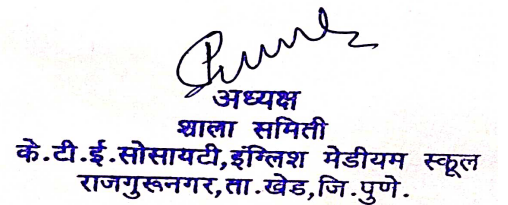 अध्यक्ष
शाला समिती
के.टी.ई.सोसायटी,इंग्लिश मेडीयम स्कूल
राजगुरूनगर,ता.खेड,जि.पुणे.